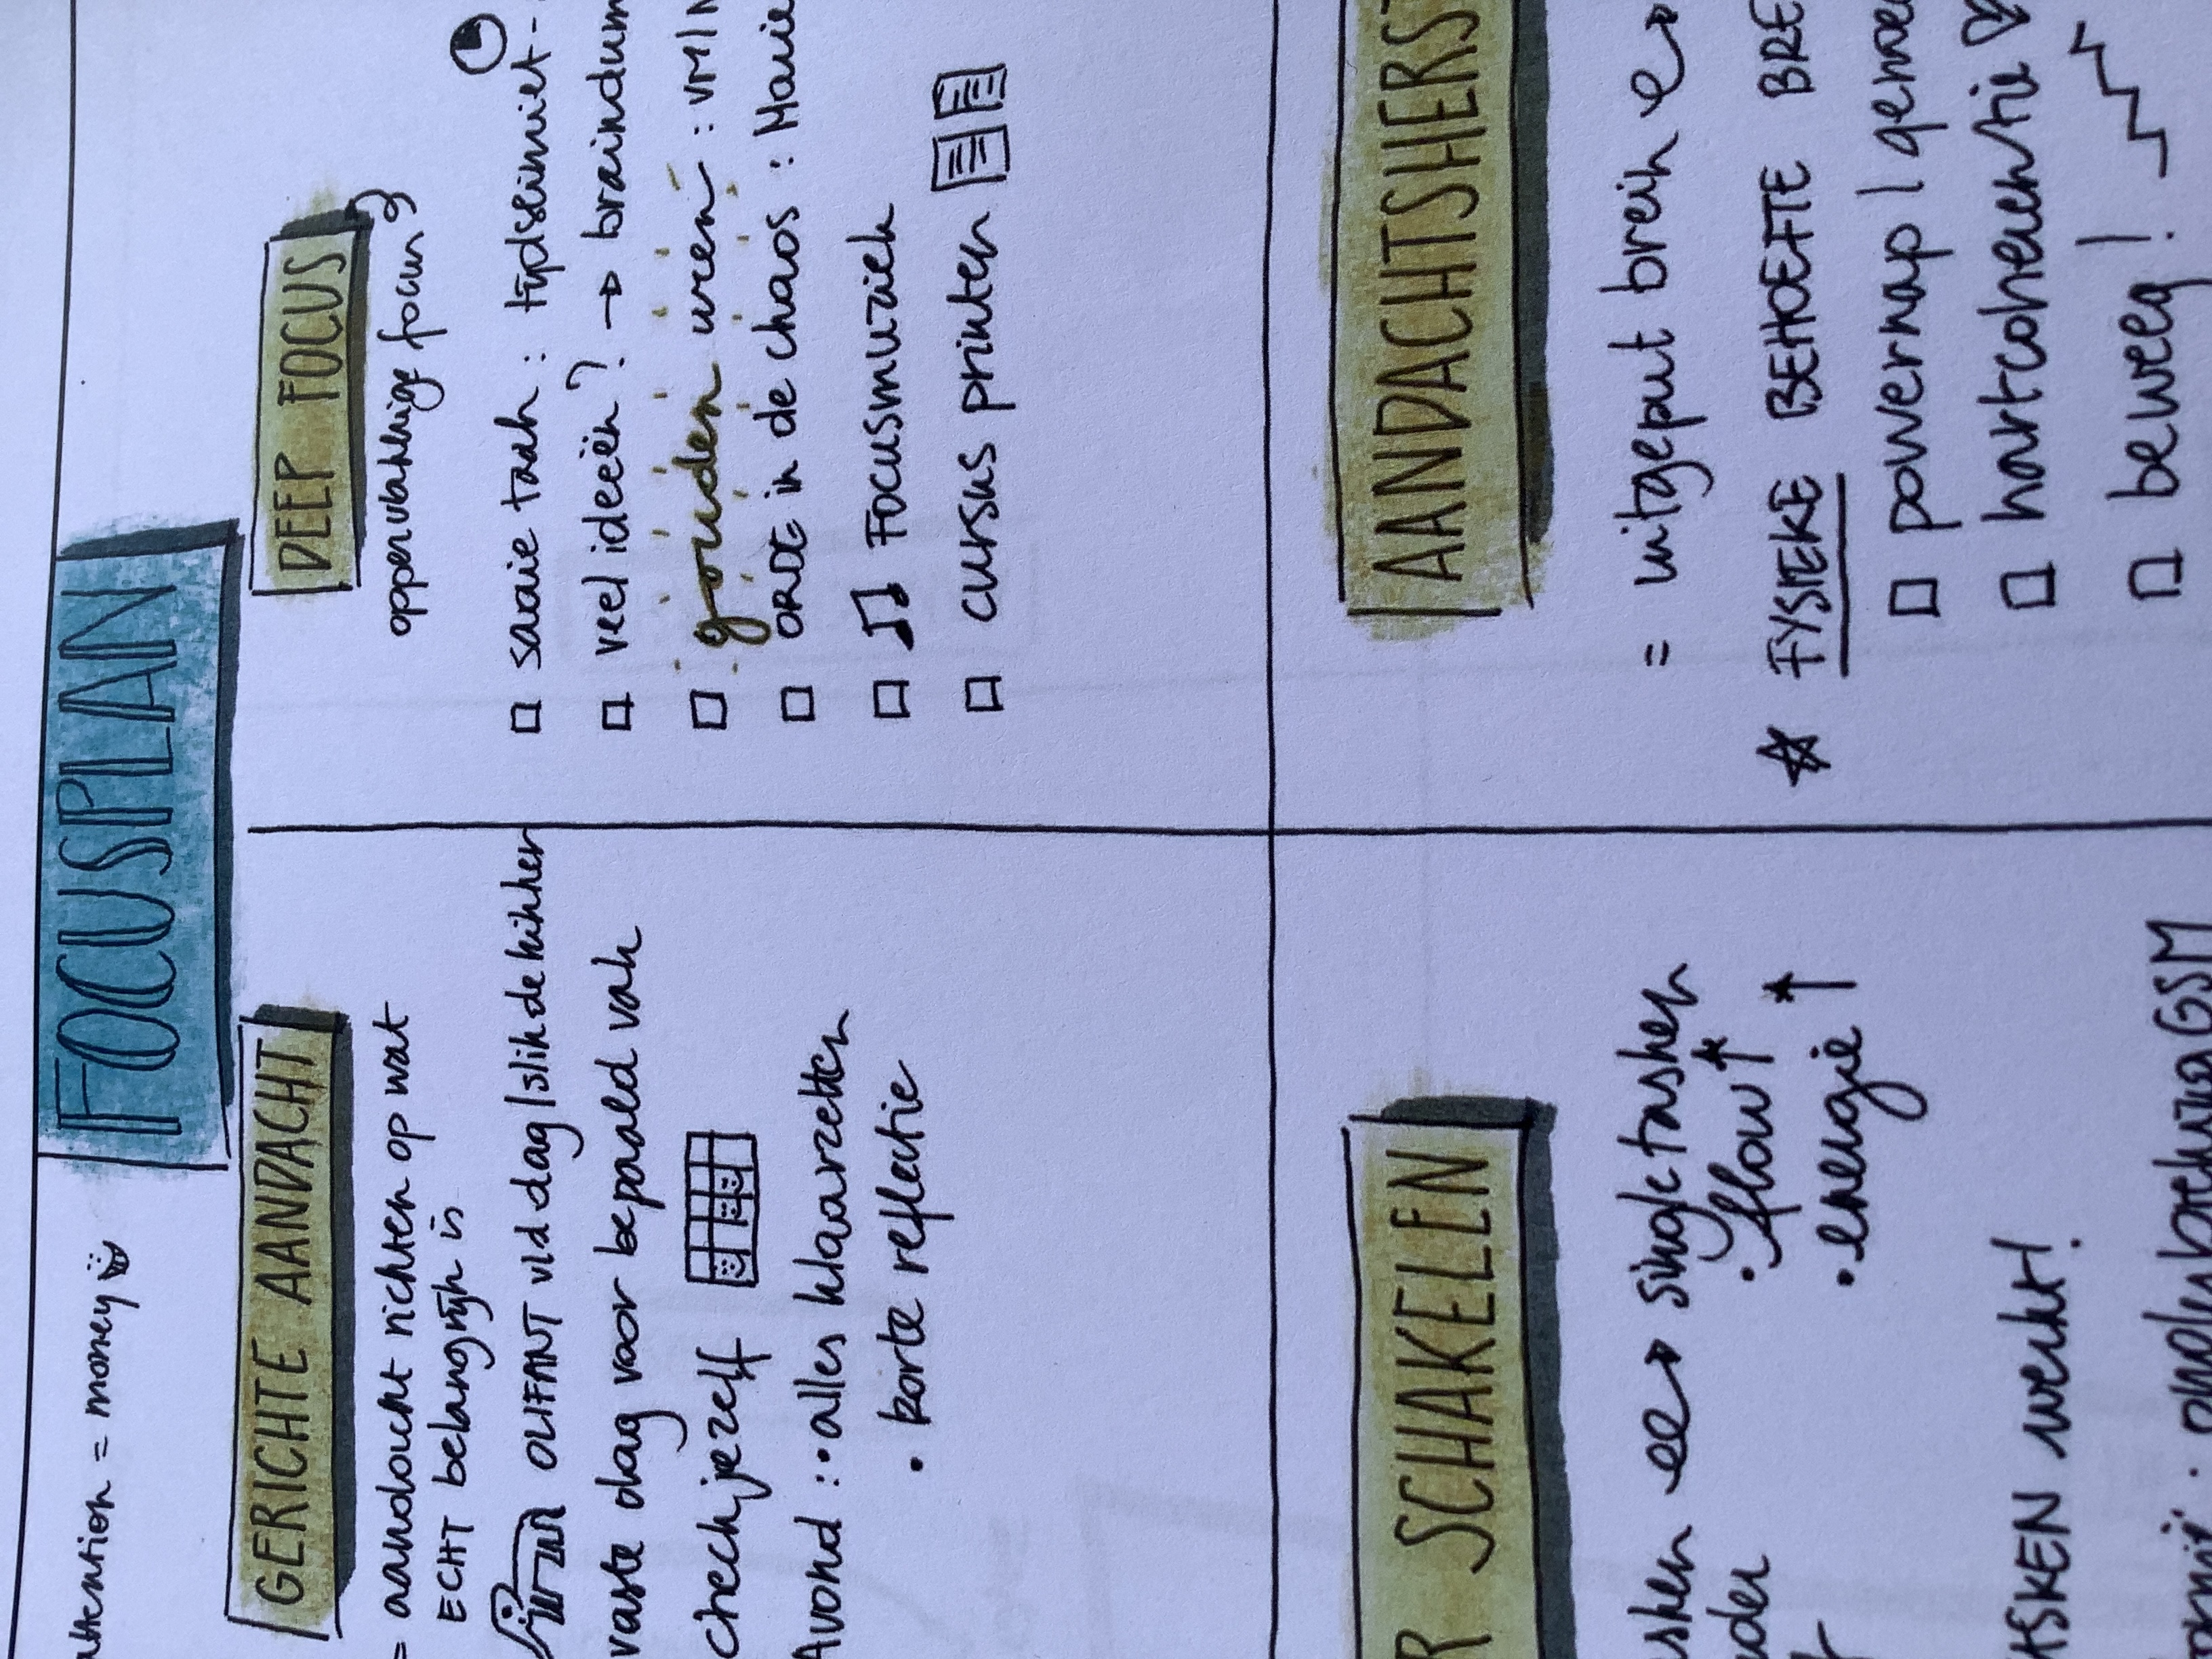 FOCUSPLAN
attention = money
GERICHTE AANDACHT
= aandacht richten op wat
ECHT belangrijk is
OLIFANT v/d dag | slik de kikker
vaste dag voor bepaald vak
check jezelf
Avond : • alles klaarzetten
• korte reflectie
DEEP FOCUS
oppervlakkige focus
saaie taak : tijdslimiet
veel ideeën? → braindum
gouden uren : VM / N
ORDE in de chaos : Marie
FOCUSmuziek
cursus printen
R SCHAKELEN
sken → singletasken
nder • flow ↑
• energie ↑
TSKEN werkt!
GSM
AANDACHTSHERST
= uitgeput brein →
* FYSIEKE BEHOEFTE BRE
powernap |
hartcoherentie ♡
beweeg!